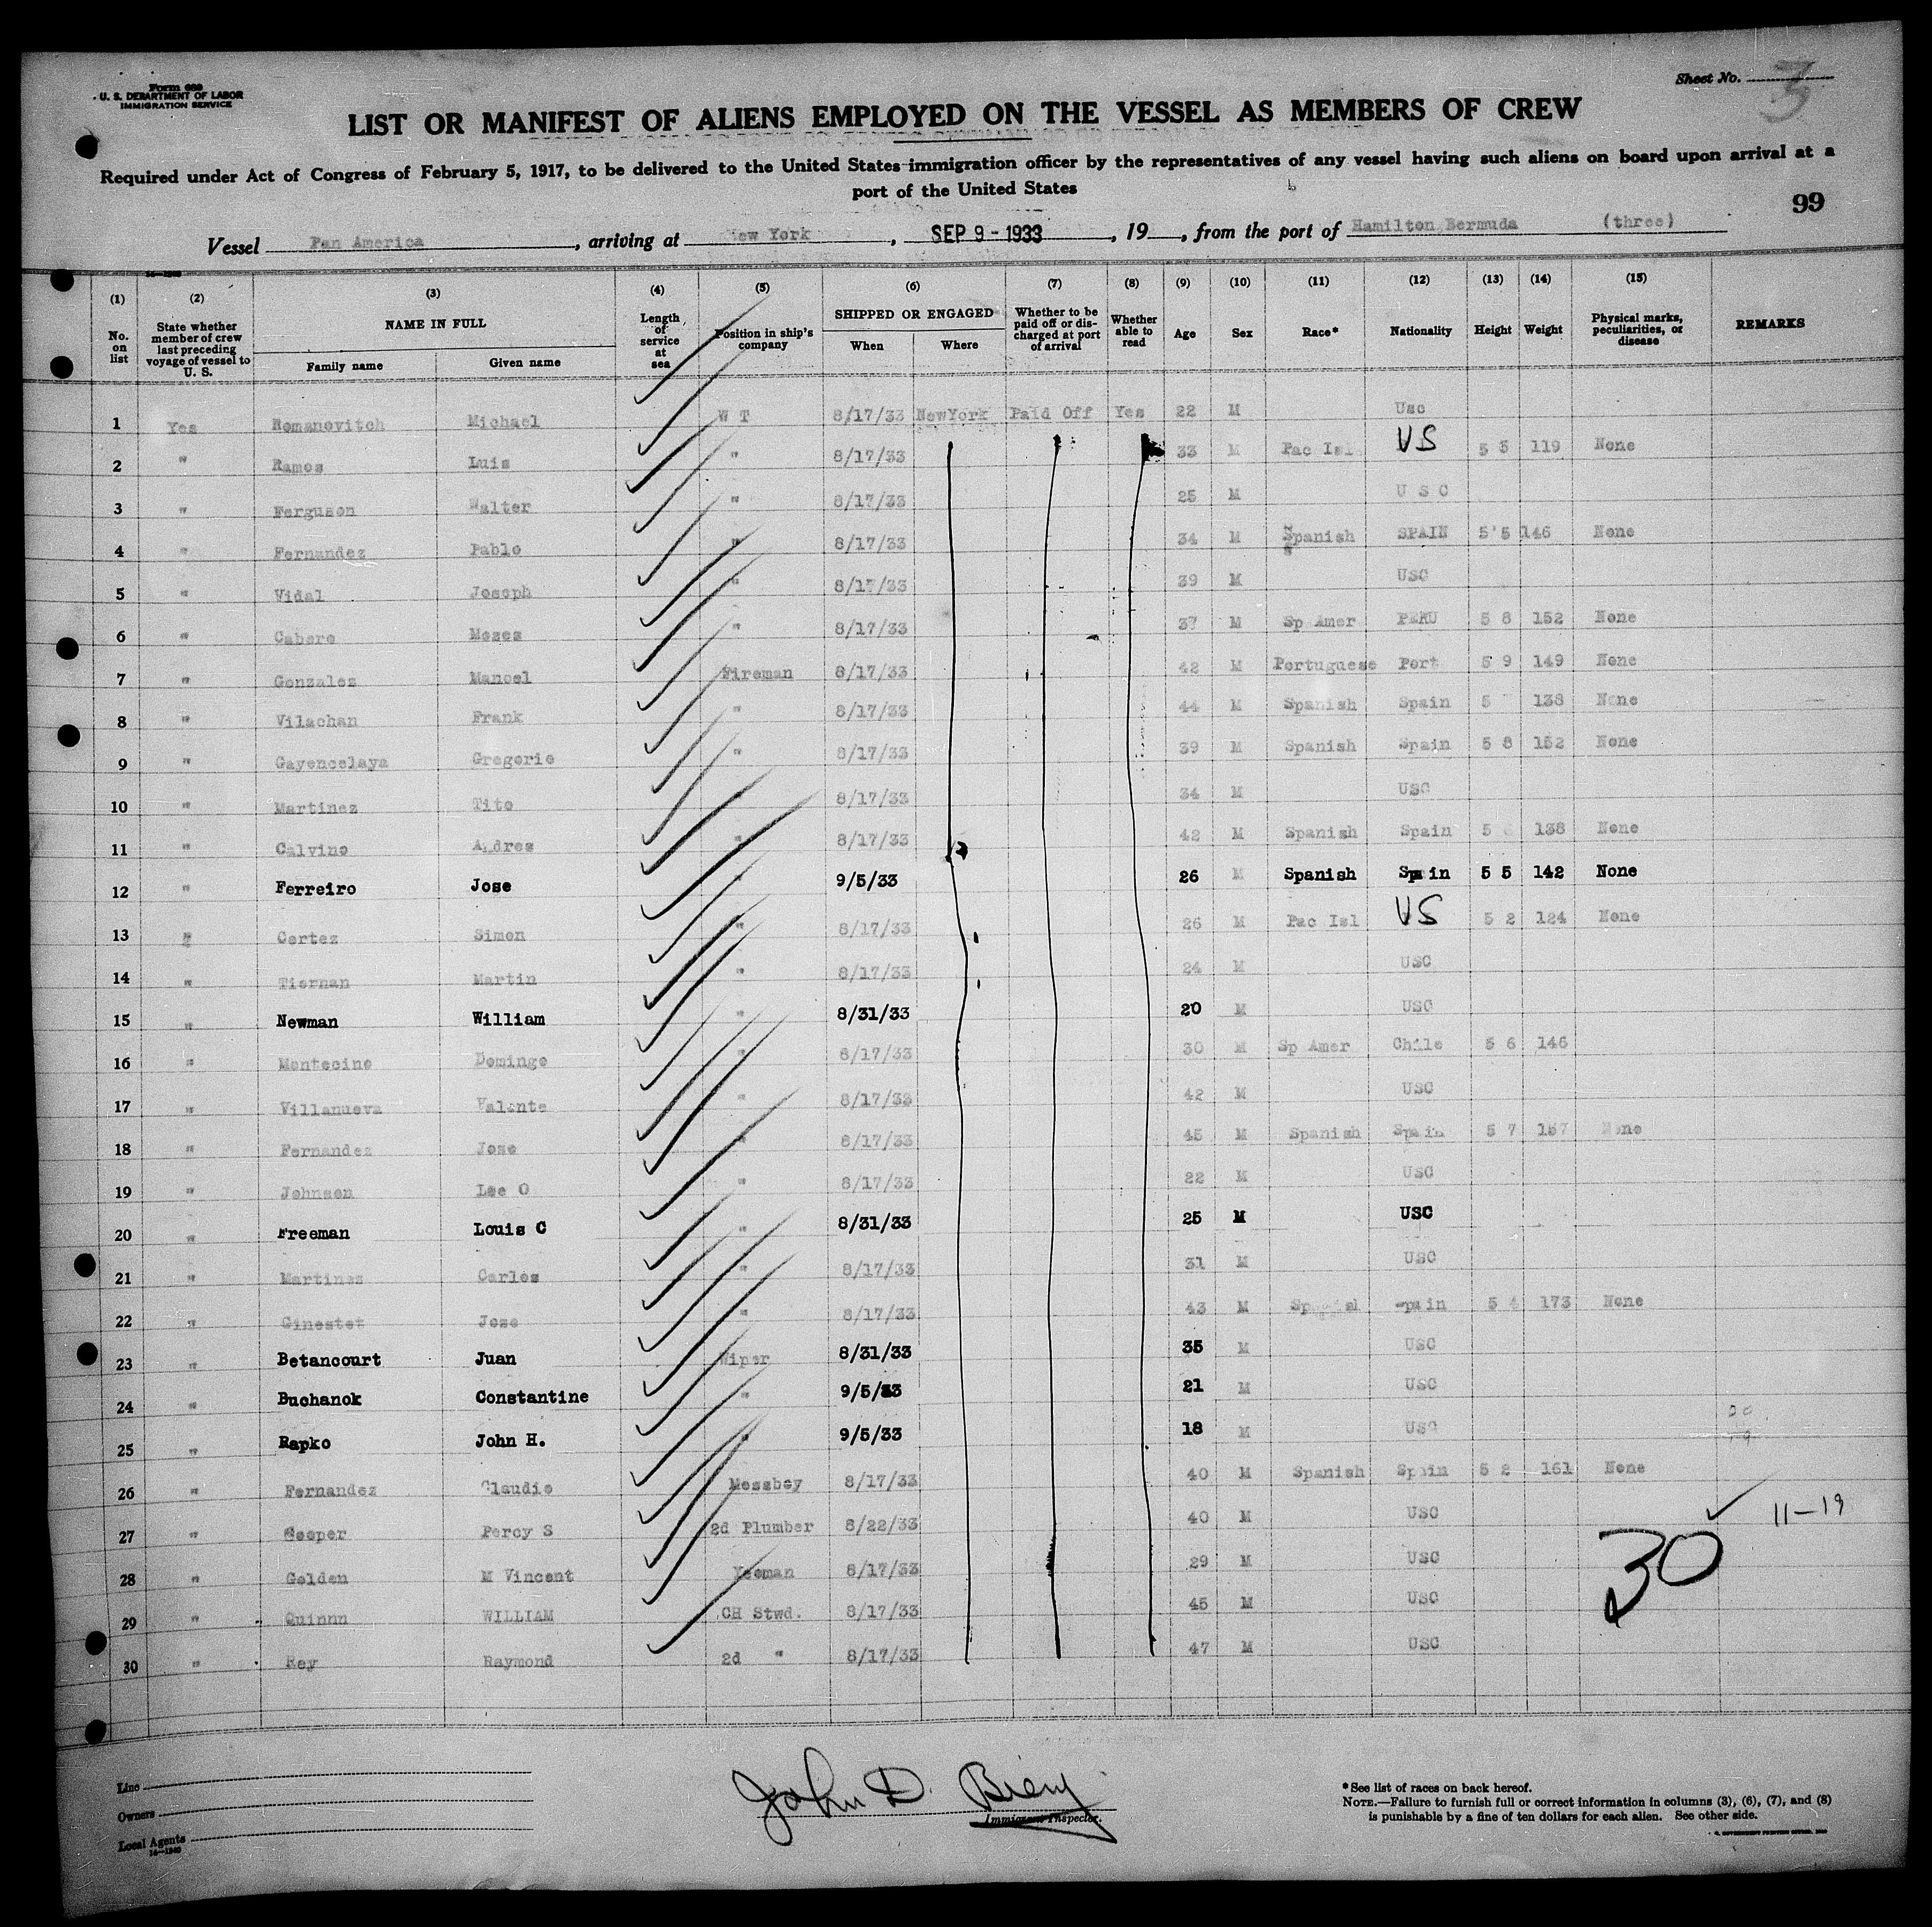 Form 689
U. S. DEPARTMENT OF LABOR
IMMIGRATION SERVICE
Sheet No. 3
LIST OR MANIFEST OF ALIENS EMPLOYED ON THE VESSEL AS MEMBERS OF CREW
Required under Act of Congress of February 5, 1917, to be delivered to the United States immigration officer by the representatives of any vessel having such aliens on board upon arrival at a
port of the United States
99
Vessel Pan America, arriving at New York, SEP 9 - 1933, 19, from the port of Hamilton Bermuda (three)
(1) (2) (3) (4) (5) (6) (7) (8) (9) (10) (11) (12) (13) (14) (15)
No. on list State whether member of crew last preceding voyage of vessel to U. S. NAME IN FULL Family name Given name Length of service at sea Position in ship's company SHIPPED OR ENGAGED When Where Whether to be paid off or discharged at port of arrival Whether able to read Age Sex Race* Nationality Height Weight Physical marks, peculiarities, or disease REMARKS
1 Yes Romanovitch Michael W T 8/17/33 NewYork Paid Off Yes 22 M Usc
2 " Ramos Luis " 8/17/33 33 M Pac Isl US 5 5 119 None
3 " Ferguson Walter " 8/17/33 25 M U S C
4 " Fernandez Pablo " 8/17/33 34 M Spanish SPAIN 5'5 146 None
5 " Vidal Joseph " 8/17/33 39 M USC
6 " Cabero Moses " 8/17/33 37 M Sp Amer PERU 5 8 152 None
7 " Gonzales Manoel Fireman 8/17/33 42 M Portuguese Port 5 9 149 None
8 " Vilachan Frank " 8/17/33 44 M Spanish Spain 5 138 None
9 " Gayencelaya Gregorio " 8/17/33 39 M Spanish Spain 5 8 152 None
10 " Martinez Tito 8/17/33 34 M USC
11 " Calvino Andres " 8/17/33 42 M Spanish Spain 5 138 None
12 " Ferreiro Jose " 9/5/33 26 M Spanish Spain 5 5 142 None
13 " Cortez Simon " 8/17/33 26 M Pac Isl US 5 2 124 None
14 " Tiernan Martin " 8/17/33 24 M USC
15 " Newman William " 8/31/33 20 M USC
16 " Montecino Domingo " 8/17/33 30 M Sp Amer Chile 5 6 146
17 " Villanueva Valente " 8/17/33 42 M USC
18 " Fernandez Jose " 8/17/33 45 M Spanish Spain 5 7 157 None
19 " Johnson Lee O " 8/17/33 22 M USC
20 " Freeman Louis C " 8/31/33 25 M USC
21 " Martinez Carlos " 8/17/33 31 M USC
22 " Ginestet Jose " 8/17/33 43 M Spain 5 4 173 None
23 " Betancourt Juan Wiper 8/31/33 35 M USC
24 " Buchanok Constantine " 9/5/33 21 M USC
25 " Rapko John H. " 9/5/33 18 M USC
26 " Fernandez Claudio Messboy 8/17/33 40 M Spanish Spain 5 2 161 None
27 " Percy S 2d Plumber 8/22/33 40 M USC 11-19
28 " Golden M Vincent Yeoman 8/17/33 29 M USC 30
29 " Quinnn WILLIAM CH Stwd. 8/17/33 45 M USC
30 " Rey Raymond 2d " 8/17/33 47 M USC
Line
Owners
Local Agents
14-1240
John D.
Immigrant Inspector.
*See list of races on back hereof.
NOTE.—Failure to furnish full or correct information in columns (3), (6), (7), and (8)
is punishable by a fine of ten dollars for each alien. See other side.